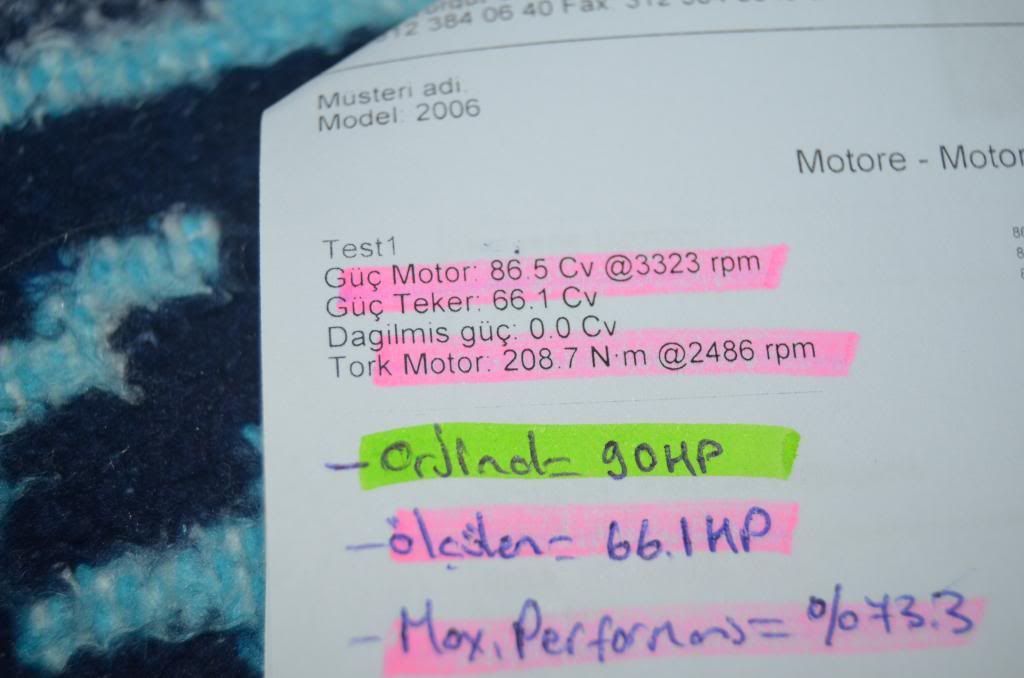 12 384 06 40 Fax: 312 384
Müsteri adi.
Model: 2006
Motore - Motor
Test1
Güç Motor: 86.5 Cv @3323 rpm
Güç Teker: 66.1 Cv
Dagilmis güç: 0.0 Cv
Tork Motor: 208.7 N·m @2486 rpm
- Orjinal = 90HP
- ölçülen = 66.1HP
- Max. Performans = %73.3